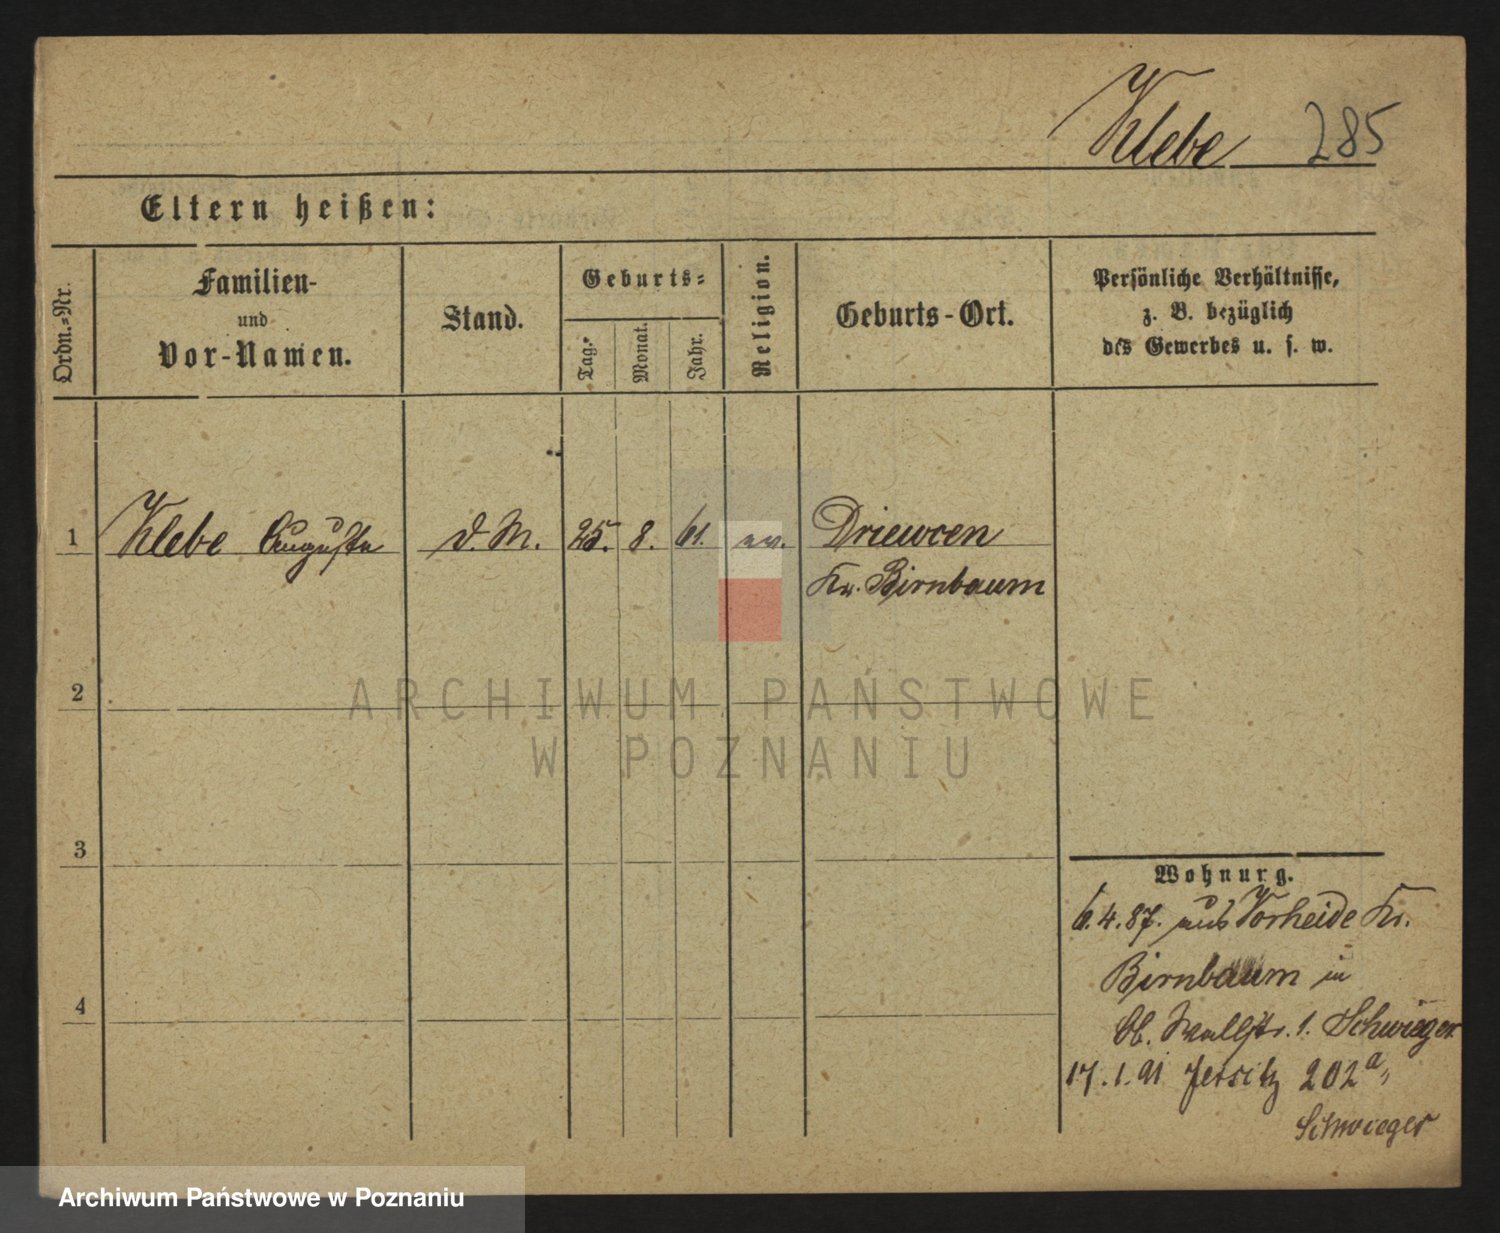 Klebe 285
Eltern heißen:
Ordn.=Nr.
Familien-
und
Vor-Namen.
Stand.
Geburts=
Tag.
Monat.
Jahr.
Religion.
Geburts-Ort.
Persönliche Verhältnisse,
z. B. bezüglich
des Gewerbes u. s. w.
1 Klebe Auguste d. M. 25. 8. 61. ev. Driewcen
Kr. Birnbaum
2
3
4
Wohnung.
6.4.87. aus Vorheide Kr.
Birnbaum in
Ob. Wallstr. 1. Schwieger
17.1.91 Jersitz 202a,
Schwieger
ARCHIWUM PAŃSTWOWE
W POZNANIU
Archiwum Państwowe w Poznaniu